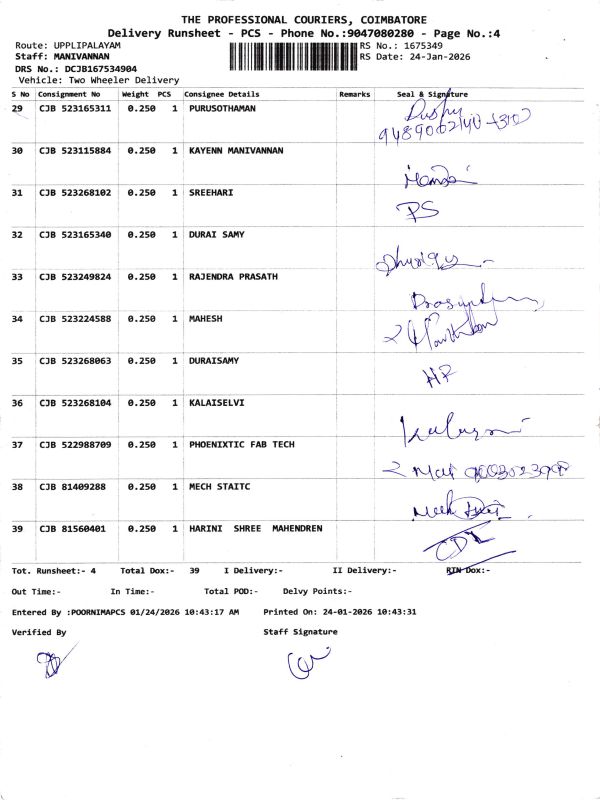 THE PROFESSIONAL COURIERS, COIMBATORE
Delivery Runsheet - PCS - Phone No.:9047080280 - Page No.:4
Route: UPPLIPALAYAM RS No.: 1675349
Staff: MANIVANNAN RS Date: 24-Jan-2026
DRS No.: DCJB167534904
Vehicle: Two Wheeler Delivery
S No Consignment No Weight PCS Consignee Details Remarks Seal & Signature
29 CJB 523165311 0.250 1 PURUSOTHAMAN
30 CJB 523115884 0.250 1 KAYENN MANIVANNAN
31 CJB 523268102 0.250 1 SREEHARI PS
32 CJB 523165340 0.250 1 DURAI SAMY
33 CJB 523249824 0.250 1 RAJENDRA PRASATH
34 CJB 523224588 0.250 1 MAHESH
35 CJB 523268063 0.250 1 DURAISAMY
36 CJB 523268104 0.250 1 KALAISELVI
37 CJB 522988709 0.250 1 PHOENIXTIC FAB TECH
38 CJB 81409288 0.250 1 MECH STAITC
39 CJB 81560401 0.250 1 HARINI SHREE MAHENDREN
Tot. Runsheet:- 4 Total Dox:- 39 I Delivery:- II Delivery:- RTN Dox:-
Out Time:- In Time:- Total POD:- Delvy Points:-
Entered By :POORNIMAPCS 01/24/2026 10:43:17 AM Printed On: 24-01-2026 10:43:31
Verified By Staff Signature